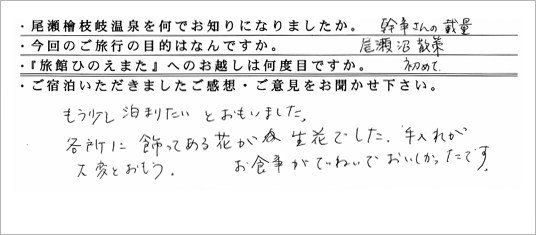 ・尾瀬檜枝岐温泉を何でお知りになりましたか。 幹事さんの裁量
・今回のご旅行の目的はなんですか。 尾瀬沼散策
・『旅館ひのえまた』へのお越しは何度目ですか。 初めて
・ご宿泊いただきましたご感想・ご意見をお聞かせ下さい。
もう少し泊まりたいとおもいました。
各所に飾ってある花が 生花でした。手入れが
大変とおもう。 お食事がていねいでおいしかったです。